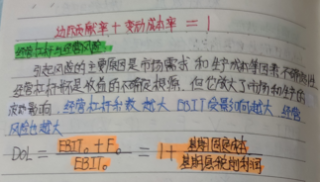 边际贡献率 + 变动成本率 = 1
经营杠杆与经营风险
引起风险的主要原因是市场需求和生产成本等因素不确定性
经营杠杆不是收益的不确定根源,但它放大了市场和生产的
波动影响,经营杠杆系数越大 EBIT受影响向越大 经营
风险也越大
DOL = EBIT₀ + F₀ / EBIT₀ = 1 + 基期固定成本 / 基期息税前利润